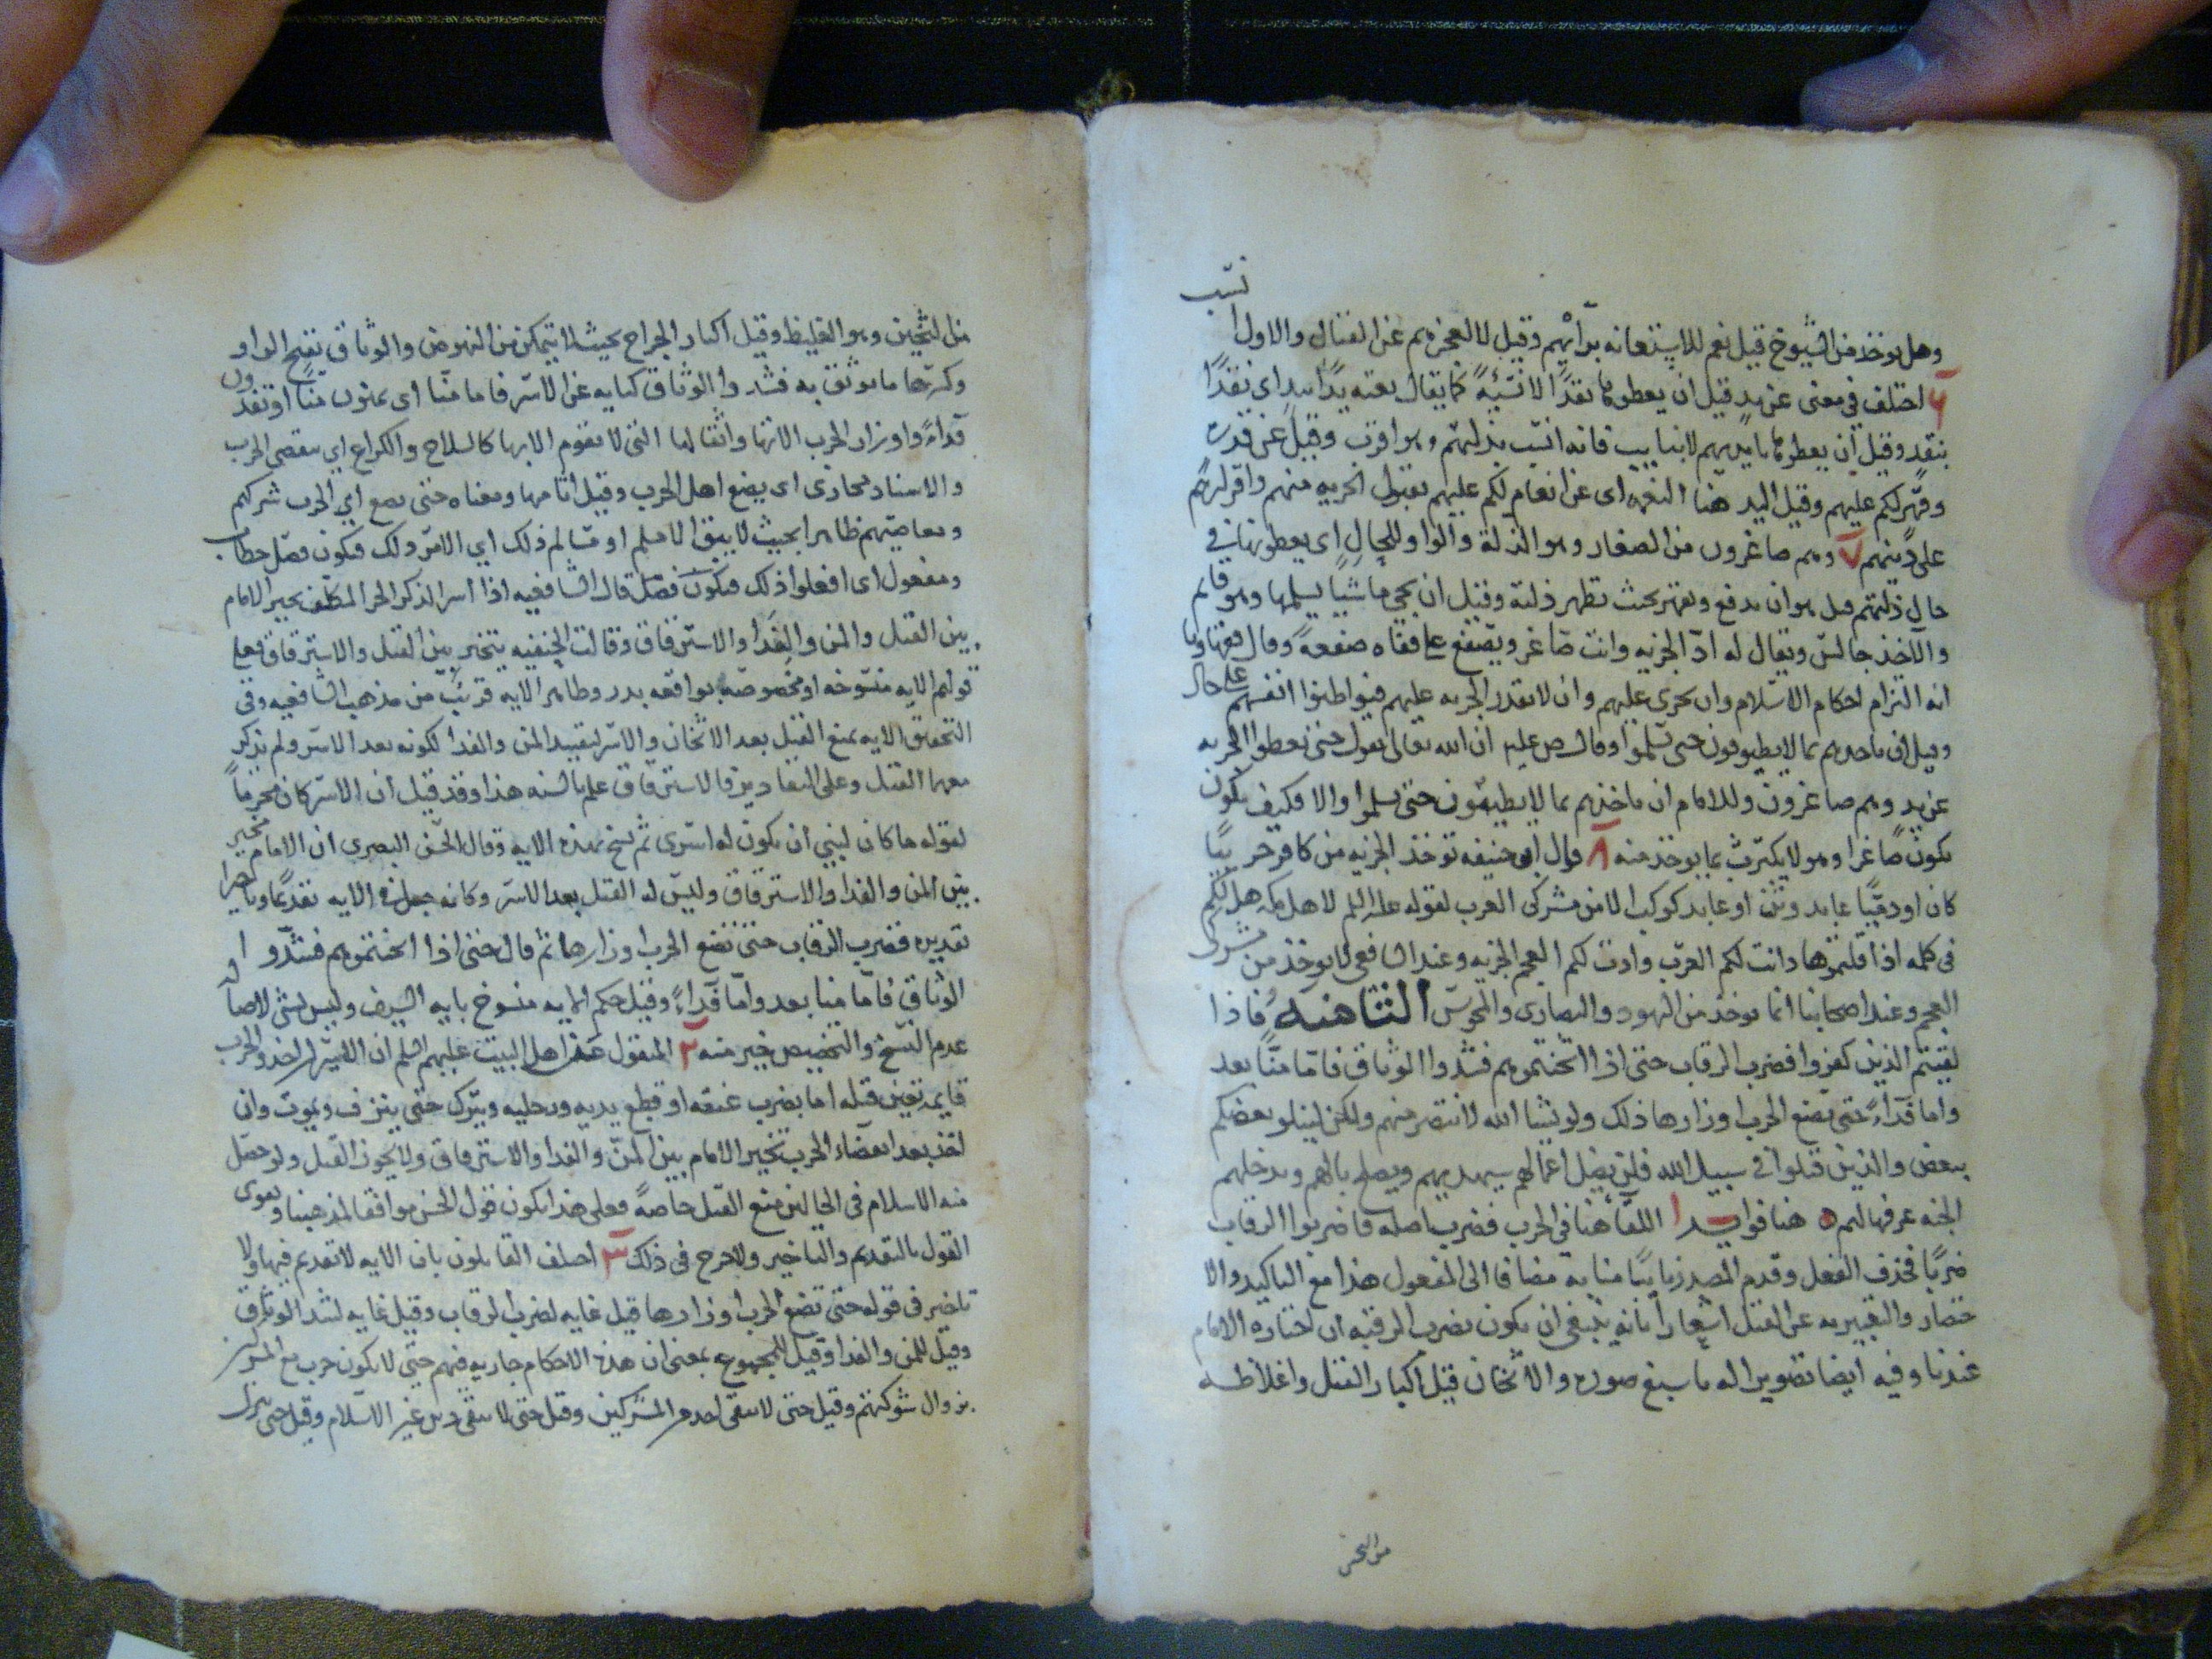 وهل يوخذ من الشيوخ قيل نعم للاستعانه برأيهم وقيل لا لعجزهم عن القتال والاول انسب
۶ اختلف في معنى عن يد قيل ان يعطوها نقدًا لا نسيةً كما يقال بعته يدًا بيد اى نقدًا
بنقد وقيل ان يعطوها بايديهم لا بنايب فانه انسب بذلتهم وهو اقرب وقيل عن قدرت
وقهر لكم عليهم وقيل اليد هنا النعمه اى عن انعام لكم عليهم بقبول الجزيه منهم واقراركم
على دينهم ۷ وهم صاغرون من الصغار وهو الذلة والواو للحال اى يعطونها في
حال ذلتهم قيل هو ان يدفع ويقهر بحيث تظهر ذلته وقيل ان يجي ماشيا يسلمها وهو قايم
والآخذ جالس ويقال له ادّ الجزيه وانت صاغر ويصفع على قفاه صفعةً وقال فقهاونا
انه التزام احكام الاسلام وان يجرى عليهم وان لا يقدر الجزيه عليهم فيواطنوا انفسهم على حال
وقيل ان ياخذهم بما لا يطيقون حتى يسلموا وقال ص عليه ان الله تعالى يقول حتى يعطوا الجزيه
عن يد وهم صاغرون وللامام ان ياخذهم بما لا يطيقون حتى يسلموا والا فكيف يكون
يكون صاغرا وهو لا يكترث بما يوخذ منه ۸ قال ابو حنيفه توخذ الجزيه من كافر حربيًا
كان او ذميًا عابد وثن او عابد كوكب الا من مشركى العرب لقوله عليه السلم لاهل مكه هل لكم
فى كلمه اذا قلتموها دانت لكم العرب وادت لكم العجم الجزيه وعند الشافعى لا يوخذ من مشركى
العجم وعند اصحابنا انما يوخذ من اليهود والنصارى والمجوس الثامنة فاذا
لقيتم الذين كفروا فضرب الرقاب حتى اذا اثخنتموهم فشدوا الوثاق فامّا منّا بعد
واما فدآءً حتى تضع الحرب اوزارها ذلك ولو يشا الله لانتصر منهم ولكن ليبلو بعضكم
ببعض والذين قتلوا في سبيل الله فلن يضل اعمالهم سيهديهم ويصلح بالهم ويدخلهم
الجنه عرفها لهم ه هنا فوايد ا اللقآ هنا في الحرب فضرب اصله فاضربوا الرقاب
ضربًا فحذف الفعل وقدم المصدر نايبًا منابه مضافا الى المفعول هذا مع التاكيد والا
ختصار والتعبير به عن القتل اشعارا بانه ينبغى ان يكون بضرب الرقبه ان اختاره الامام
عندنا وفيه ايضا تصوير له باشنع صورة والاثخان قيل اكبار القتل واغلاظه
من الثخين
من الثخين وهو الغليظ وقيل اكثار الجراح بحيث لا يتمكن من النهوض والوثاق بفتح الواو
وكسرها ما يوثق به فشدوا الوثاق كنايه عن الاسر فاما منّا اى يمنون منّا او تفدون
فدآءً واوزار الحرب الاتها واثقالها التى لا يقوم الا بها كالسلاح والكراع اى ينقضى الحرب
والاسناد مجازى اى يضع اهل الحرب وقيل اثامها ومعناه حتى يضع اهل الحرب شركهم
ومعاصيهم ظاهرا بحيث لا يبقى الا مسلم او مسالم ذلك اي الامر ذلك فيكون فصل خطاب
ومفعول اى افعلوا ذلك فيكون فضل قال الشافعيه اذا اسر الذكر الحر المكلف يخير الامام
بين القتل والمن والفدا والاسترقاق وقالت الحنفيه يتخير بين القتل والاسترقاق فعلى
قولهم الايه منسوخه او مخصوصه بواقعه بدر وظاهر الايه قريب من مذهب الشافعيه وفى
التحقيق الايه يمنع القتل بعد الاثخان والاسر لتقييد المن والفدا لكونه بعد الاسر ولم يذكر
معهما القتل وعلى التقادير فالاسترقاق علم بالسنه هذا وقد قيل ان الاسر كان محرمًا
لقوله ما كان لنبي ان يكون له اسرى ثم نسخ بهذه الايه وقال الحسن البصرى ان الامام مخير
بين المن والفدا والاسترقاق وليس له القتل بعد الاسر وكانه جعل في الايه تقديمًا وتاخيرا
تقديره فضرب الرقاب حتى تضع الحرب اوزارها ثم قال حتى اذا اثخنتموهم فشدّوا
الوثاق فامّا منا بعد وامّا فدآءً وقيل حكم الايه منسوخ بايه السيف وليس بشى لاصاله
عدم النسخ والتخصيص خير منه ۲ المنقول عن اهل البيت عليهم السلم ان الاسير ان اخذ والحرب
قايمه تعين قتله اما بضرب عنقه او قطع يديه ورجليه ويترك حتى ينزف ويموت وان
اخذ بعد انقضآء الحرب تخير الامام بين المنّ والفدا والاسترقاق ولا يجوز القتل ولو حصل
منه الاسلام فى الحالين منع القتل خاصةً فعلى هذا يكون قول الحسن موافقا لمذهبنا ويقوى
القول بالتقديم والتاخير ولا حرج فى ذلك ۳ اختلف القايلون بان الايه لا تقديم فيها ولا
تاخير فى قوله حتى تضع الحرب اوزارها قيل غايه لضرب الرقاب وقيل غايه لشد الوثاق
وقيل للمن والفدا وقيل للمجموع بمعنى ان هذه الاحكام جاريه فيهم حتى لا يكون حرب مع المشركين
بزوال شوكتهم وقيل حتى لا يبقى احد من المشركين وقيل حتى لا يبقى دين غير الاسلام وقيل حتى ينزل